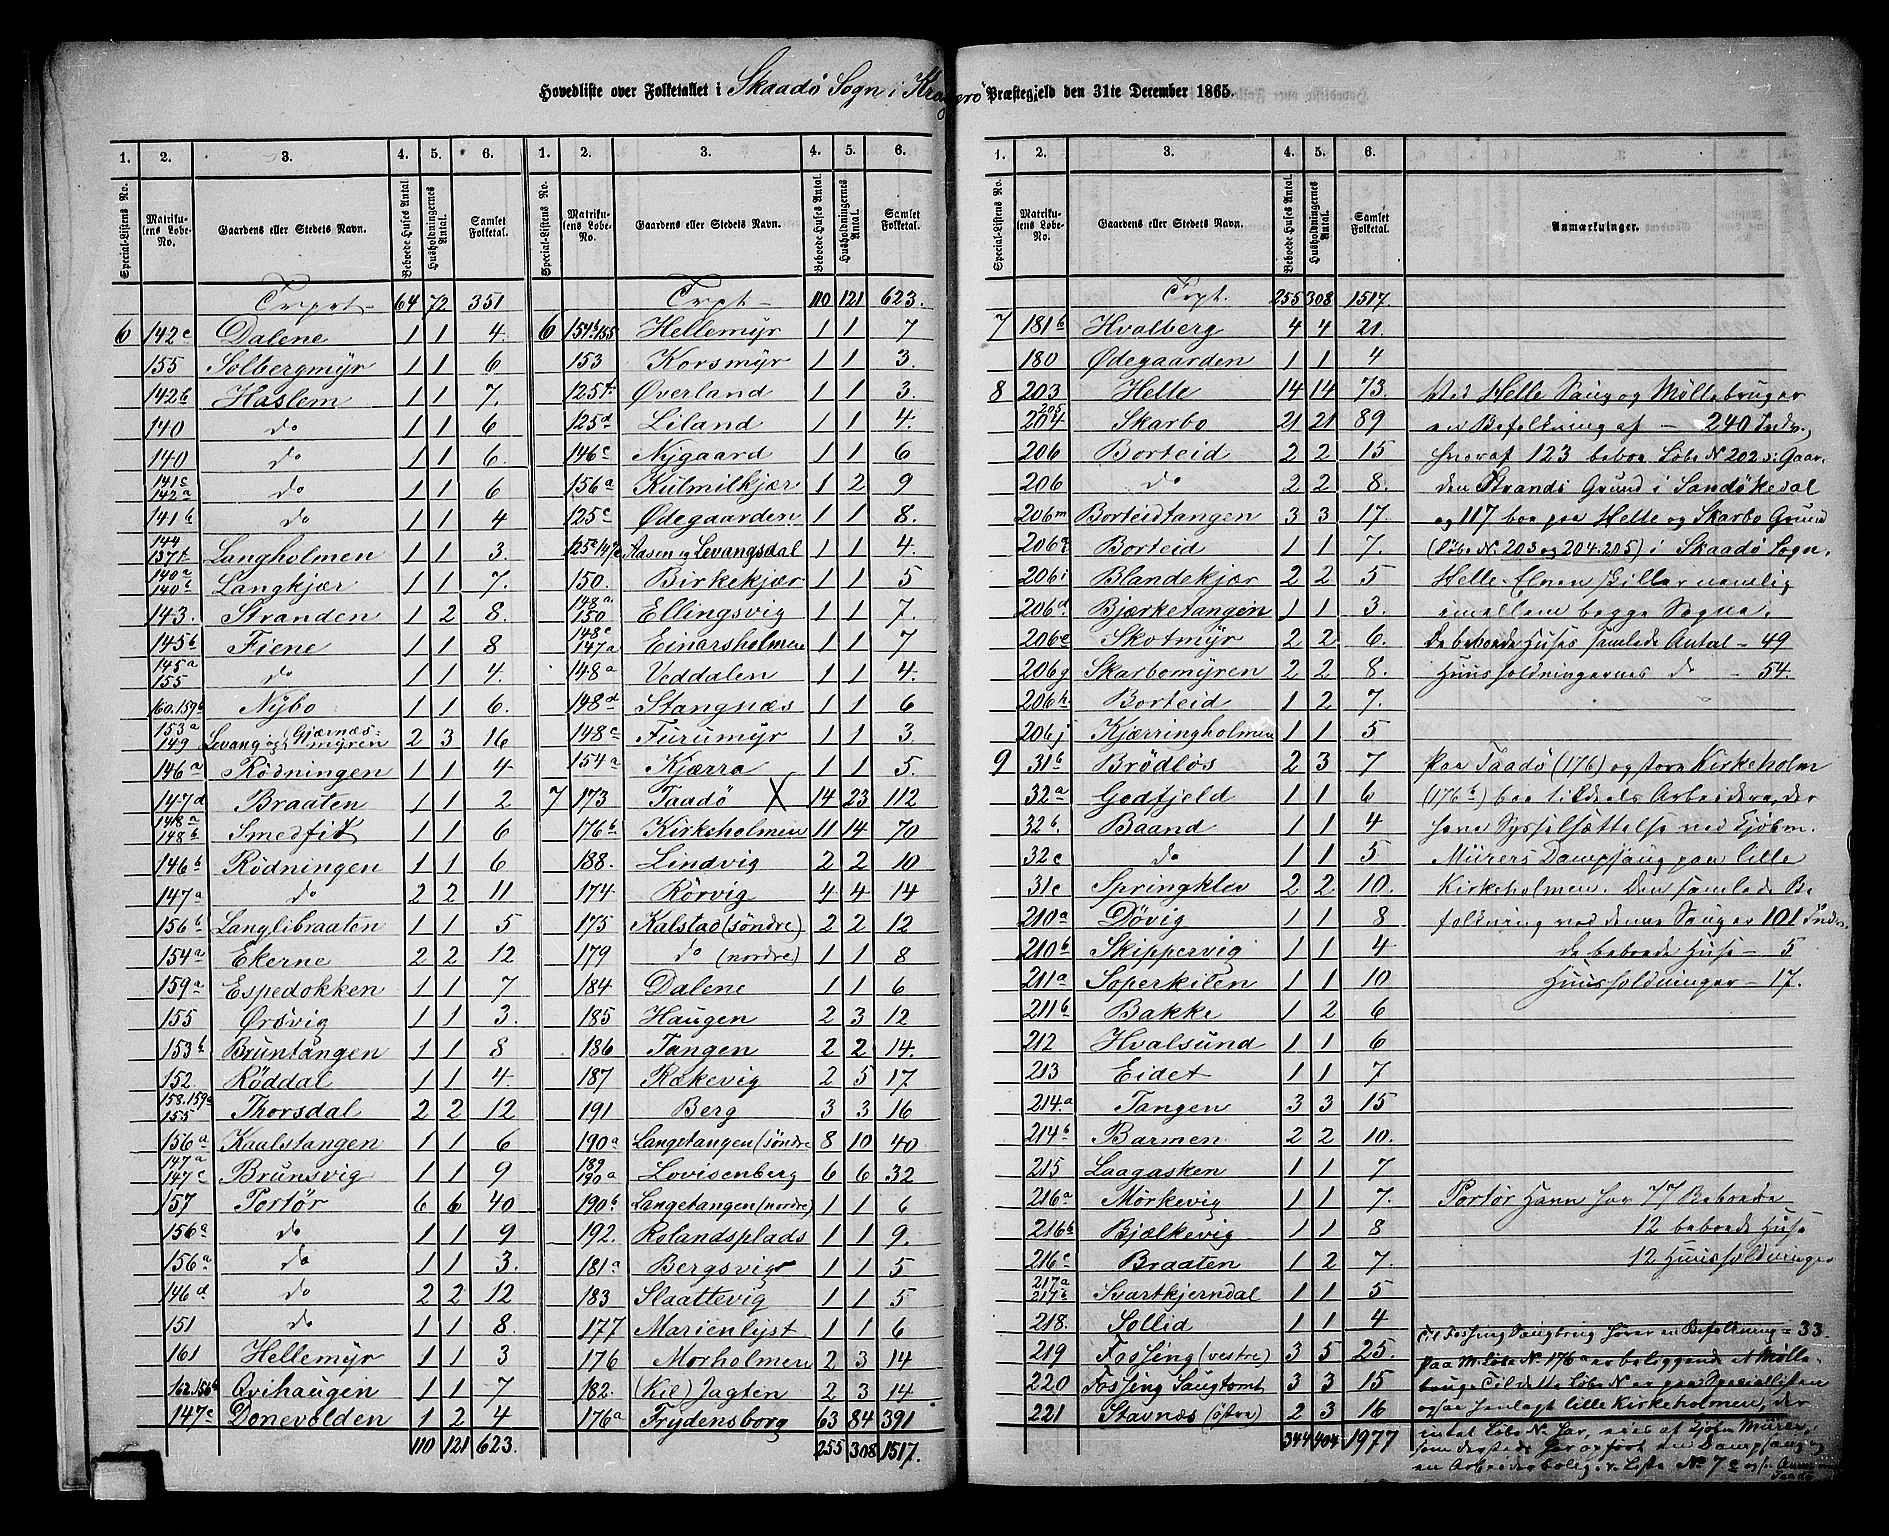 Hovedliste over Folketallet i Skaadö Sogn i Kragerö Præstegjeld den 31te December 1865.
1. 2. 3. 4. 5. 6.
Special-Listens No. Matrikulens Løbe-No. Gaardens eller Stedets Navn. Beboede Huses Antal. Husholdningernes Antal. Samlet Folketal.
Trpt 64 72 351
6 142c Dalene 1 1 4
155 Solbergmÿr 1 1 6
142b Haslem 1 1 7.
140 do 1 1 6
140 do 1 1 6.
141c 142a do 1 1 6
141b do 1 1 4
144 137f Langholmen 1 1 3.
140a 140b Langkjær 1 1 7.
143. Stranden 1 2 8.
145b Fiene 1 1 8
145a 155 do 1 1 4.
160.159b Nÿbo 1 1 6.
153a 149 Levang og Gjærnæsmyren 2 3 16
146a Rödningen 1 1 4
147d Braaten 1 1 2
148a 148b Smedfit 1 1 6
146b Rödningen 1 1 6
147a do 2 2 11
156b Langlibraaten 1 1 5
154a Ekerne 2 2 12
159a Espedokken 1 1 7
155 Ørsvig 1 1 3.
153b Bruntangen 1 1 8
152 Röddal 1 1 4
158.159c 155 Thorsdal 2 2 12
156a Kaalstangen 1 1 6
147a 147c Brunsvig 1 1 9
157 Portör 6 6 40
156a do 1 1 9
156a do 1 1 3.
146d do 2 2 12
151 do 1 1 8.
161 Hellemÿr 1 1 3
162.156b Qvihaugen 1 1 7
147c Donevolden 1 2 4
110 121 623.
1. 2. 3. 4. 5. 6.
Special-Listens No. Matrikulens Løbe-No. Gaardens eller Stedets Navn. Beboede Huses Antal. Husholdningernes Antal. Samlet Folketal.
Trpt 110 121 623.
6 154b.155 Hellemÿr 1 1 7
153 Korsmÿr 1 1 3.
125f. Øverland 1 1 3.
125d Liland 1 1 4.
146c Nÿgaard 1 1 6
156a Kulmilkjær 1 2 9
125c Ødegaarden 1 1 8.
125c 147c Aasen og Levangsdal 1 1 4.
150. Birkekjær 1 1 5
148a 150 Ellingsvig 1 1 7.
148c 147a Einarsholmen 1 1 7
148a Veddalen 1 1 4.
148d Stangnæs 1 1 6
148c Furumÿr 1 1 3
154a Kjærra 1 1 5.
7 173 Taadö X 14 23 112
176b Kirkeholmen 11 14 70
188. Lindvig 2 2 10
174 Rörvig 4 4 14
175 Kalstad (söndre) 2 2 12
179 do (nordre) 1 1 8
184 Dalene 1 1 6
185 Haugen 2 3 12
186 Tangen 2 2 14.
187 Rakevig 2 5 17
191 Berg 3 3 16
190a Langetangen (söndre 8 10 40
189 190a Lovisenberg 6 6 32
190b Langetangen (nordre) 1 1 6
192. Rolandsplads 1 1 9.
181a Bergsvig 1 1 5
183 Slaattevig 1 1 5
177 Marienlyst 1 1 6
176 Morholmen 2 3 14
182. (Kil) Jagten 2 3 14
176a Frydensborg 63 84 391
255 308 1517.
1. 2. 3. 4. 5. 6.
Special-Listens No. Matrikulens Løbe-No. Gaardens eller Stedets Navn. Beboede Huses Antal. Husholdningernes Antal. Samlet Folketal. Anmærkninger.
Trpt. 255 308 1517.
7 181b Hvalberg 4 4 21.
180 Ødegaarden 1 1 4
8 203 Helle 14 14 73. Ved Helle Saug og Möllebruger
205 204 Skarbo 21 21 89 en Befolkning af — 240 Indv.,
206 Borteid 2 2 15 hvoraf 123 beboe Löbe N. 202 ɔ: Gaar-
206 do 2 2 8. den Strands Grund i Sandökedal
206m Borteidtangen 3 3 17. og 117 boe paa Helle og Skarbo Grund
206 Borteid 1 1 7. (Löbe N. 203 og 204.205) i Skaadö Sogn.
206i Blandekjær 2 2 5 Helle-Elven skiller nemlig
206d Bjærketangen 1 1 3. imellem begge Sogne.
206e Skotmÿr 2 2 6. De beboede Huses samlede Antal — 49
206g Skarbomÿren 2 2 8. Huusholdningernes do — 54.
206h Borteid 1 2 7.
206j Kjærringholmen 1 1 5
9 31b Brödlös 2 3 7 Paa Taadö (176) og store Kirkeholm
32a Godfjeld 1 1 6 (176b) boe tildels Arbeidere, der
32b. Baand 1 1 4 have Sysselsættelse ved Kjöbm.
32c do 1 1 5 Mürers Dampsaug paa lille
31c Springklev 2 2 10. Kirkeholmen. Den samlede Be
210a Dövig 1 1 8 folkning ved denne Saug er 101 Indv.
210b Skippervig 1 1 4 De beboede Huse — 5
211a Soperkilen 1 1 10 Huusholdninger — 17.
211b Bakke 1 2 6
212 Hvalsund 1 1 6
213 Eidet 1 1 7
214.a Tangen 3 3 15
214b Barmen 2 2 10.
215 Laagasken 1 1 7
216a Mörkevig 1 1 7. Portör Havn har 77 Beboede
216b Bjælkevig 1 1 8 12 beboede Huse
216c Braaten 1 2 7. 12 Huusholdninger
217a 217b Svartkjerndal 1 1 5
218. Sollid 1 1 4 Til Fossing Saugbrug hörer en Befolkning = 33.
219 Fossing (vestre) 3 5 25. paa M. Löbe N. 176a er beliggende et Mölle-
220 Fossing Saugtomt 3 3 15 brug. Til dette Löbe N. er paa Speciallisten
221 Stavnæs (öfre) 2 3 16 ogsaa henlagt lille Kirkeholmen, der
344 404 1977 intet Löbe N. har, eies af Kjöbm Mürer,
som dersteds har opfört en Dampsaug og
en Arbeiderbolig. v. Liste N. 7
Taadö